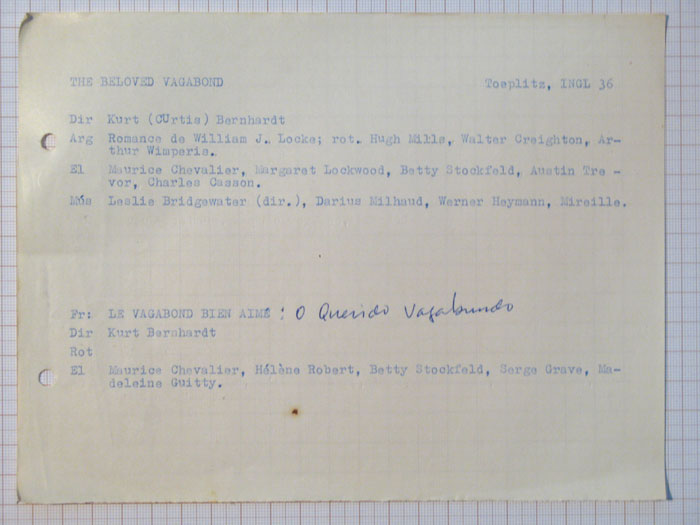 THE BELOVED VAGABOND Toeplitz, INGL 36
Dir Kurt (CUrtis) Bernhardt
Arg Romance de William J. Locke; rot. Hugh Mills, Walter Creighton, Ar-
thur Wimperis.
El Maurice Chevalier, Margaret Lockwood, Betty Stockfeld, Austin Tre -
vor, Charles Casson.
Mús Leslie Bridgewater (dir.), Darius Milhaud, Werner Heymann, Mireille.
Fr: LE VAGABOND BIEN AIMÉ : O Querido Vagabundo
Dir Kurt Bernhardt
Rot
El Maurice Chevalier, Hélène Robert, Betty Stockfeld, Serge Grave, Ma-
deleine Guitty.